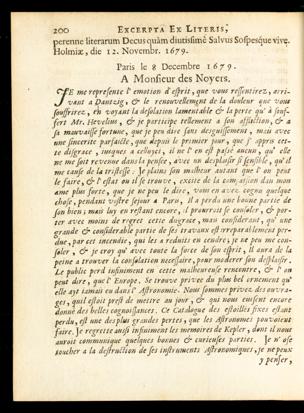 200 EXCERPTA EX LITERIS,
perenne literarum Decus quàm diutissimè Salvus Sospesque vive.
Holmiæ, die 12. Novembr. 1679.
Paris le 8 Decembre 1679.
A Monsieur des Noyers.
JE me represente l'emotion d'esprit, que vous ressentirez, arri-
vant a Dantzig, & le renouvellement de la douleur que vous
souffrirez, en voyant la desolation lamentable & la perte qu'à souf-
fert Mr. Hevelius, & je participe tellement a son affliction, & a
sa mauvaise fortune, que je peu dire sans desguisement, mais avec
une sincerité parfaite, que depuis le premier jour, que j' appris cet-
te disgrace, iusques a celluycy, il ne s'en est passé aucun, qu' elle
ne me soit revenue dans la pensée, avec un desplaisir si sensible, qu'il
me cause de la tristesse. Je plains son malheur autant que l'on peut
le faire, & l'estat ou il se trouve, excite de la compassion dans mon
ame plus forte, que je ne peu le dire, vous en avez cognu quelque
chose, pendant vostre sejour a Paris, Il a perdu une bonne partie de
son bien; mais luy en restant encore, il pourroit se consoler, & por-
ter avec moins de regret cette disgrace, mais considerant, qu' une
grande & considerable partie de ses travaux est irreparablement per-
due, par cet incendie, qui les a reduits en cendre, je ne peu me con-
soler, & je croy qu' avec toute la force de son esprit, il aura de la
peine a trouver la consolation necessaire, pour moderer son desplaisir.
Le public perd infiniment en cette malheureuse rencontre, & l'on
peut dire, que l' Europe. Se trouve privee du plus bel ornement qu'
elle ayt iamais eu dans l' Astronomie. Nous sommes privez des ouvra-
ges, quil estoit prest de mettre au jour, & qui nous eussent encore
donné des belles cognoissances. Ce Catalogue des estoilles fixes estant
perdu, est une des plus grandes pertes, que les Astronomes pouvoient
faire. Je regrette aussi infiniment les memoires de Kepler, dont il nous
auroit communiqué quelques bonnes & curieuses parties. Je n'ose
toucher a la destruction de ses instruments Astronomiques, je ne peux
y penser,